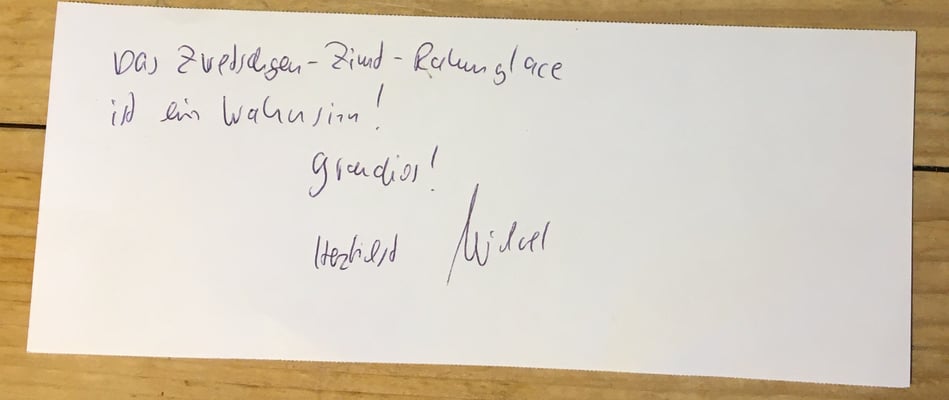 Das Zwetschgen-Zimt-Rahmglace
ist ein Wahnsinn!
Grandios!
Herzlichst Michael